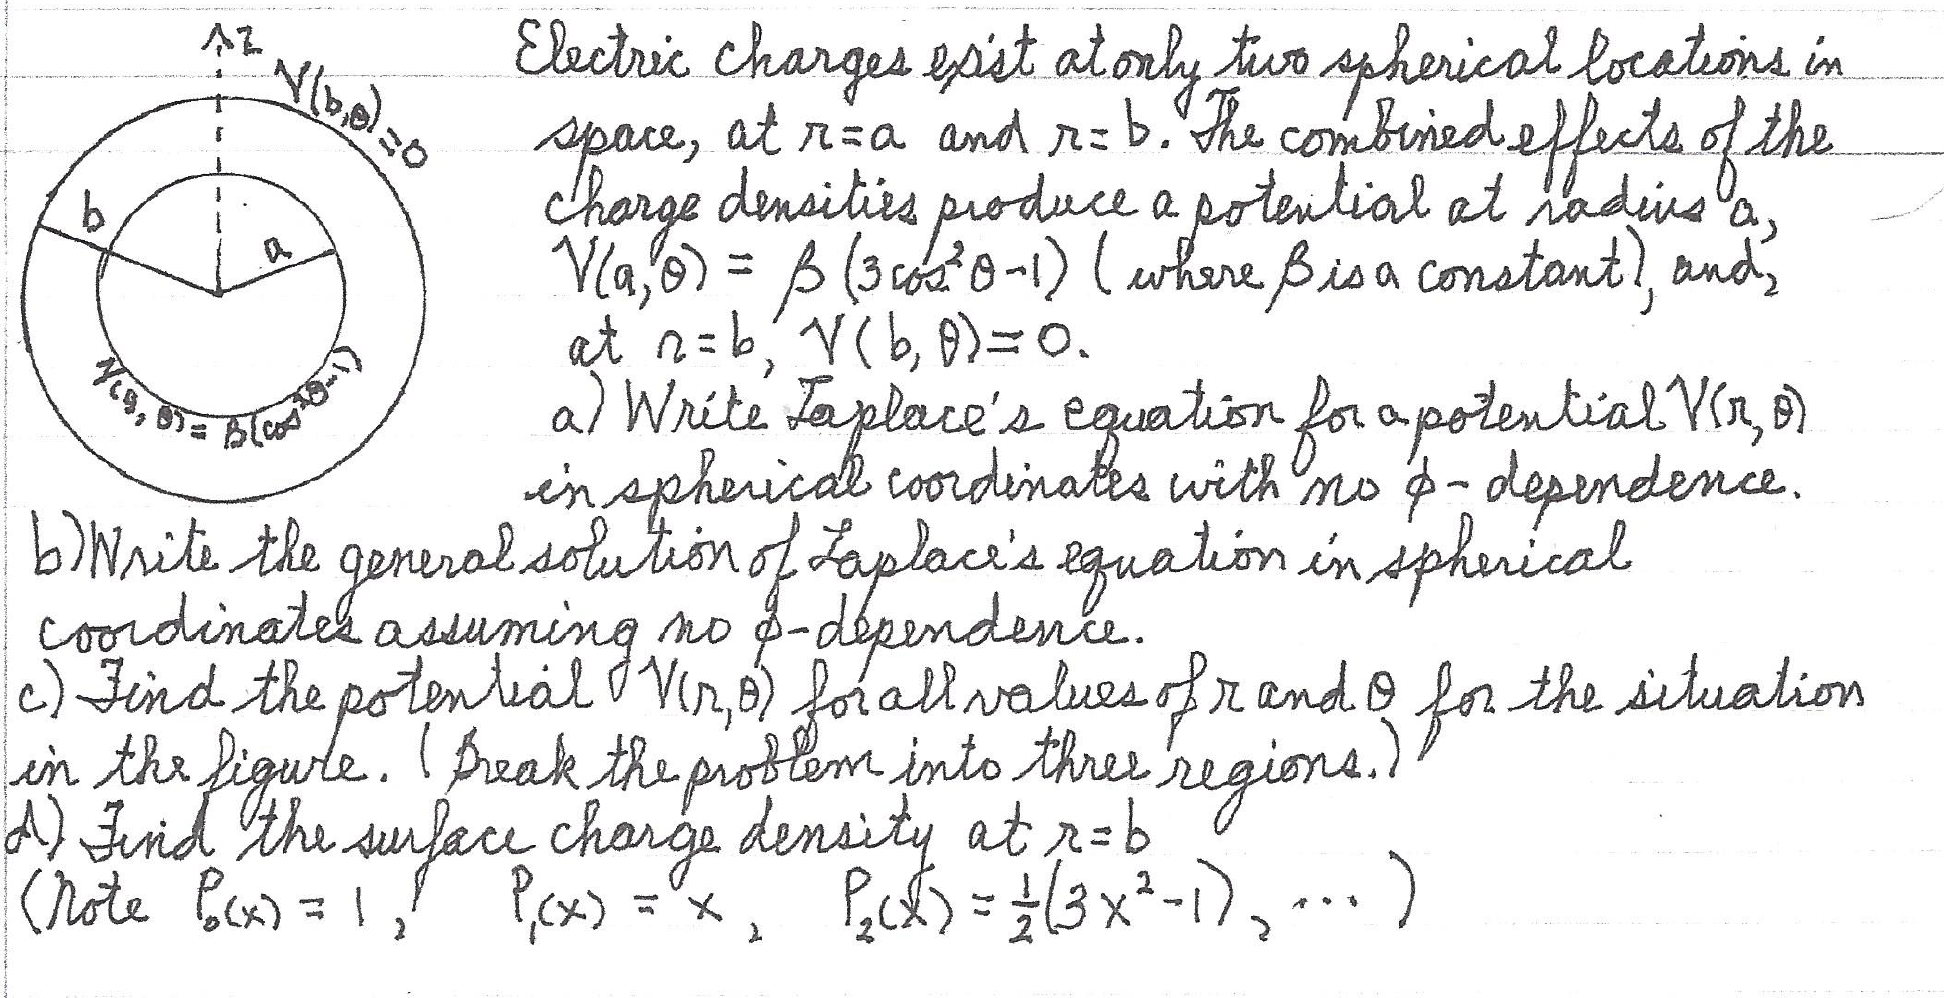 z
V(b,θ)=0
b
a
V(a, θ) = β(cos²θ-1)
Electric charges exist at only two spherical locations in
space, at r=a and r=b. The combined effects of the
charge densities produce a potential at radius a,
V(a,θ) = β (3cos²θ-1) (where β is a constant), and,
at r=b, V(b,θ)=0.
a) Write Laplace's equation for a potential V(r,θ)
in spherical coordinates with no φ-dependence.
b) Write the general solution of Laplace's equation in spherical
coordinates assuming no φ-dependence.
c) Find the potential V(r,θ) for all values of r and θ for the situation
in the figure. (Break the problem into three regions.)
d) Find the surface charge density at r=b
(Note P₀(x) = 1, P₁(x) = x, P₂(x) = ½(3x²-1), ...)